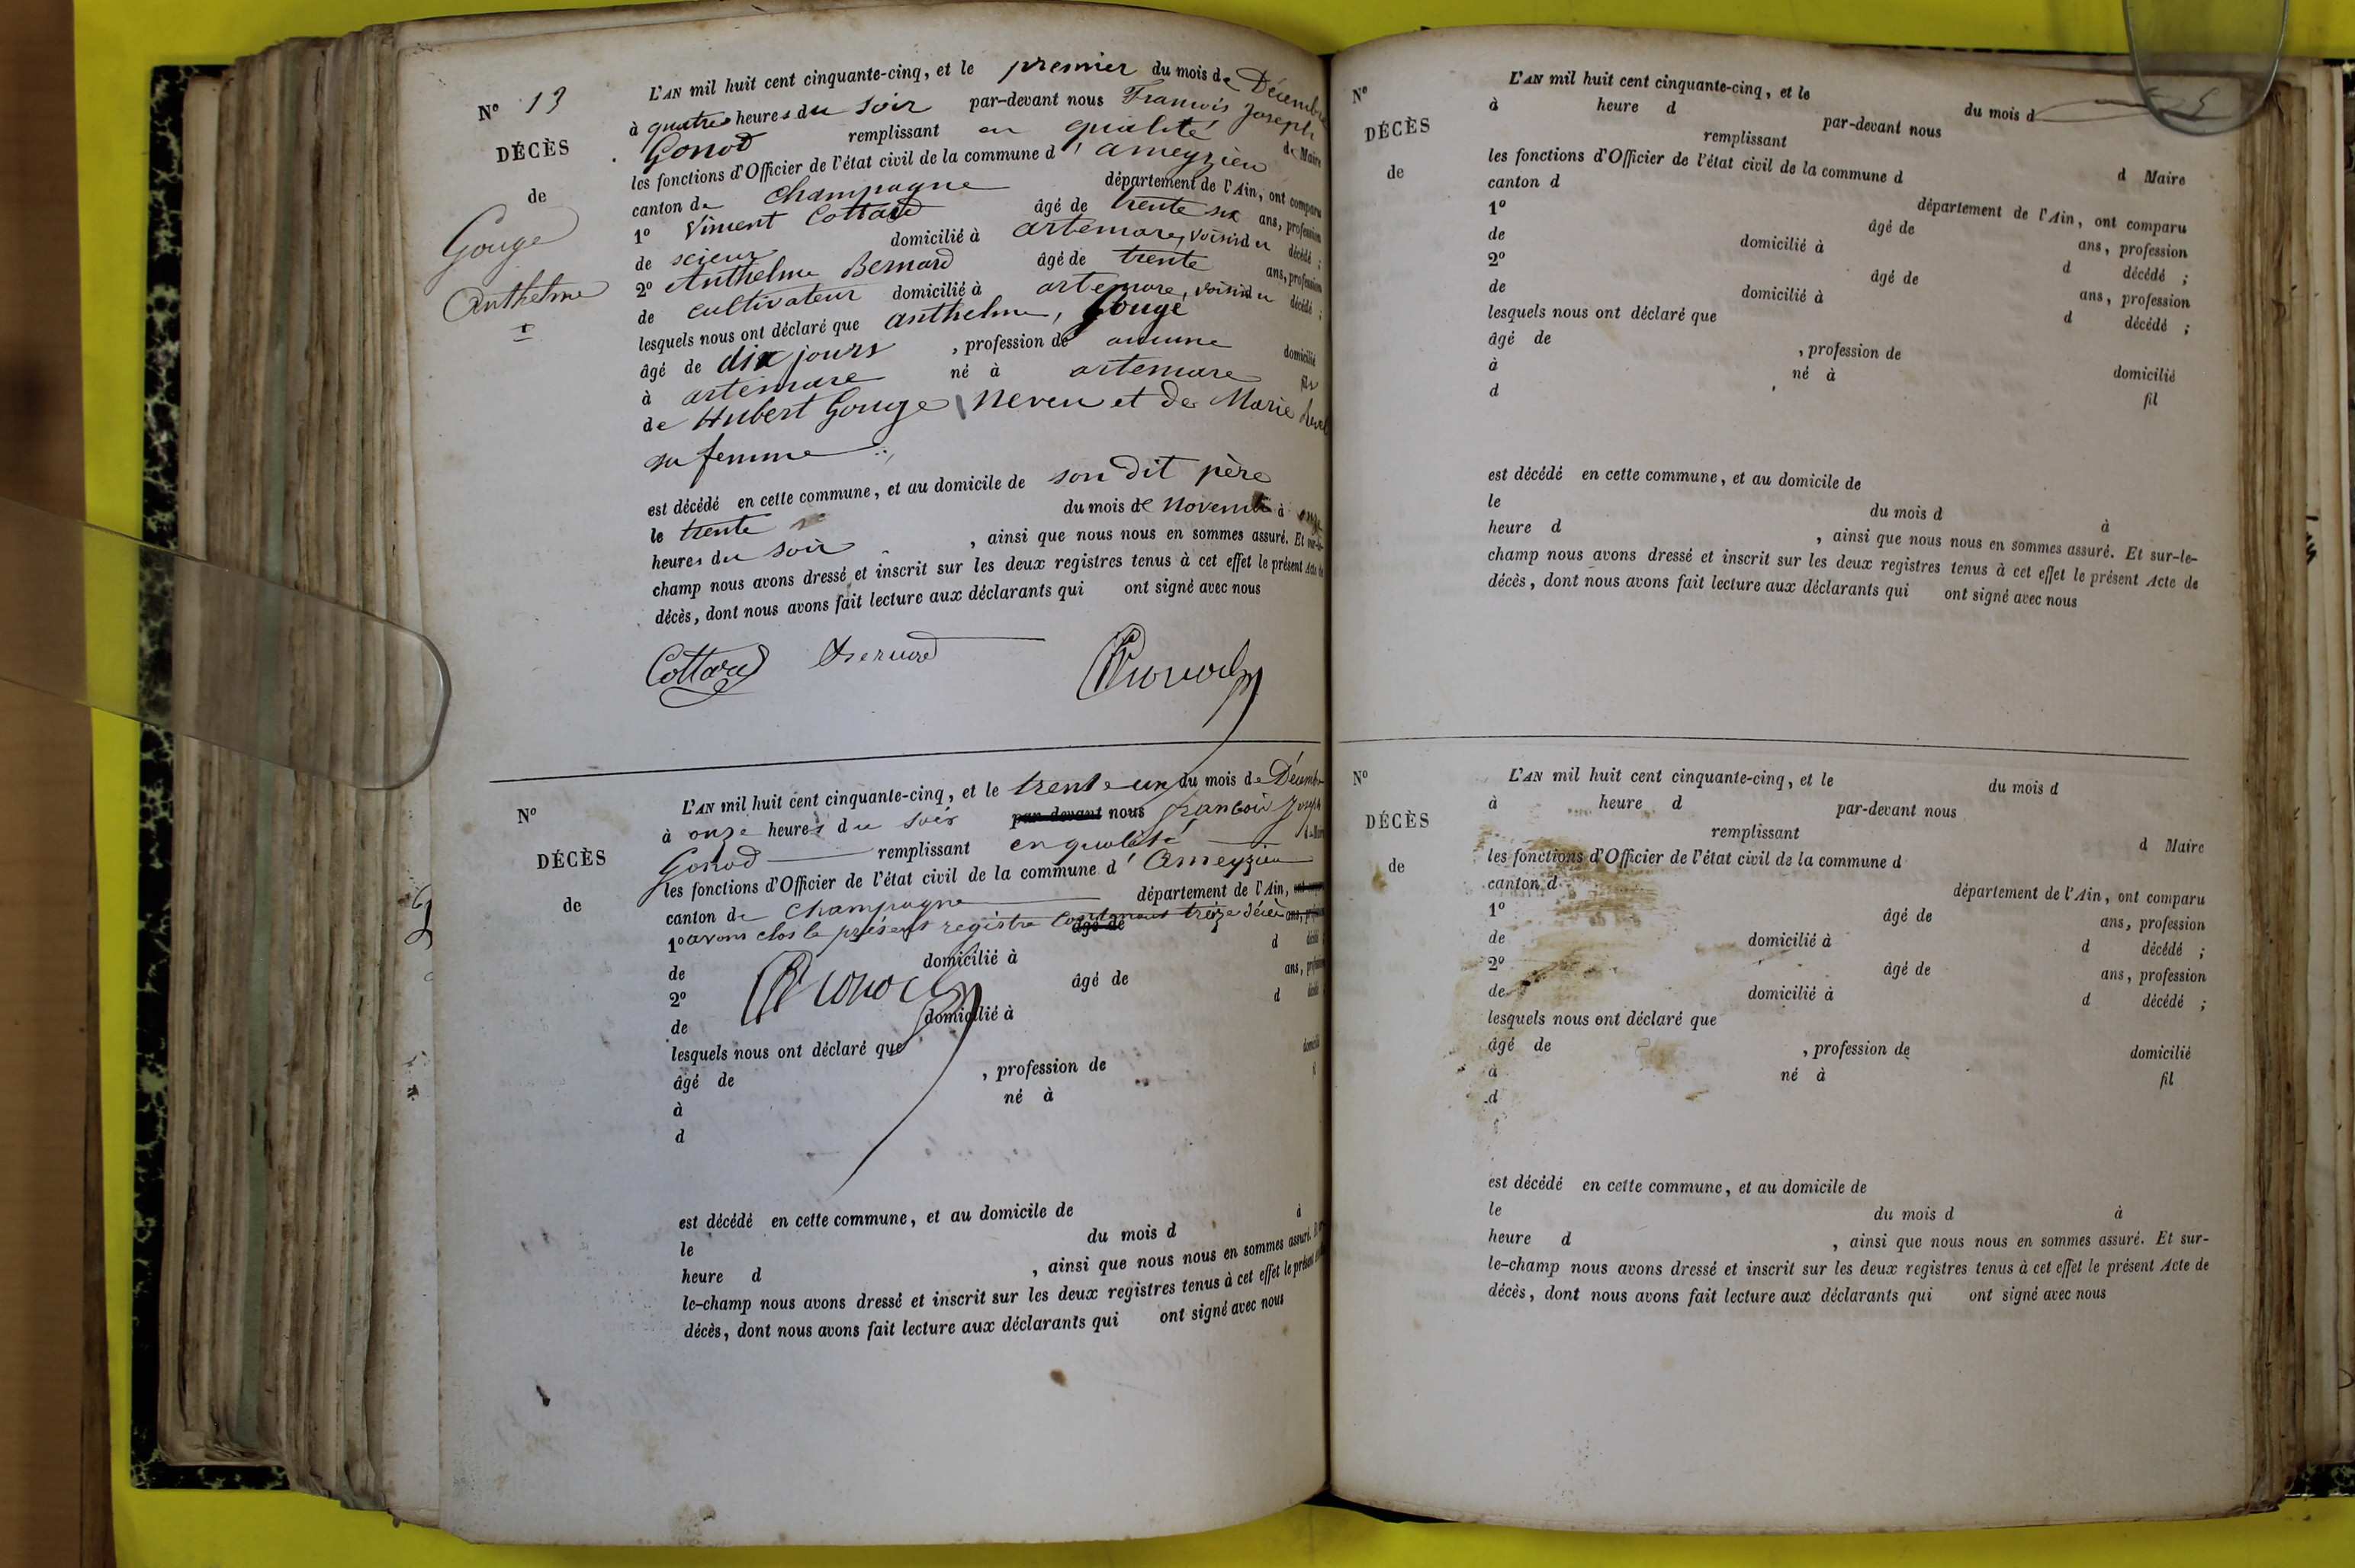 L'AN mil huit cent cinquante-cinq, et le premier du mois de Décembre
N° 13
à quatre heures du soir par-devant nous Francois Joseph
Gonod remplissant en qualité de Maire
DÉCÈS
les fonctions d'Officier de l'état civil de la commune d'ameyzieu
de
canton de Champagne département de l'Ain, ont comparu
Gouge
Anthelme
1° Vincent Cottard âgé de trente six ans, profession
de scieur domicilié à artemare, voisin du décédé ;
2° Anthelme Bernard âgé de trente ans, profession
de cultivateur domicilié à artemare, voisin du décédé ;
lesquels nous ont déclaré que anthelme, Gouge
âgé de dix jours , profession de aucune domicilié
à artemare né à artemare fils
de Hubert Gouge Neveu et de Marie
sa femme
est décédé en cette commune, et au domicile de son dit père
le trente du mois de Novembre à onze
heures du soir , ainsi que nous nous en sommes assuré. Et sur-le-
champ nous avons dressé et inscrit sur les deux registres tenus à cet effet le présent Acte de
décès, dont nous avons fait lecture aux déclarants qui ont signé avec nous
Cottard Bernard Gonod
L'AN mil huit cent cinquante-cinq, et le trente un du mois de Décembre
N°
à onze heures du soir par-devant nous francois Joseph
Gonod remplissant en qualité de Maire
DÉCÈS
les fonctions d'Officier de l'état civil de la commune d'Ameyzieu
de
canton de Champagne département de l'Ain, ont comparu
1° avons clos le présent registre contenant treize décès âgé de ans, profession
de domicilié à d décédé
2° âgé de ans, profession
Gonod
de domicilié à d décédé
lesquels nous ont déclaré que
âgé de , profession de domicilié
à né à fil
d
est décédé en cette commune, et au domicile de
le du mois d à
heure d , ainsi que nous nous en sommes assuré. Et sur-
le-champ nous avons dressé et inscrit sur les deux registres tenus à cet effet le présent Acte de
décès, dont nous avons fait lecture aux déclarants qui ont signé avec nous
N°
L'AN mil huit cent cinquante-cinq, et le du mois d
à heure d par-devant nous
DÉCÈS
remplissant d Maire
les fonctions d'Officier de l'état civil de la commune d
de
canton d département de l'Ain, ont comparu
1° âgé de ans, profession
de domicilié à d décédé ;
2° âgé de ans, profession
de domicilié à d décédé ;
lesquels nous ont déclaré que
âgé de , profession de domicilié
à né à fil
d
est décédé en cette commune, et au domicile de
le du mois d à
heure d , ainsi que nous nous en sommes assuré. Et sur-le-
champ nous avons dressé et inscrit sur les deux registres tenus à cet effet le présent Acte de
décès, dont nous avons fait lecture aux déclarants qui ont signé avec nous
N°
L'AN mil huit cent cinquante-cinq, et le du mois d
à heure d par-devant nous
DÉCÈS
remplissant d Maire
les fonctions d'Officier de l'état civil de la commune d
de
canton d département de l'Ain, ont comparu
1° âgé de ans, profession
de domicilié à d décédé ;
2° âgé de ans, profession
de domicilié à d décédé ;
lesquels nous ont déclaré que
âgé de , profession de domicilié
à né à fil
d
est décédé en cette commune, et au domicile de
le du mois d à
heure d , ainsi que nous nous en sommes assuré. Et sur-
le-champ nous avons dressé et inscrit sur les deux registres tenus à cet effet le présent Acte de
décès, dont nous avons fait lecture aux déclarants qui ont signé avec nous